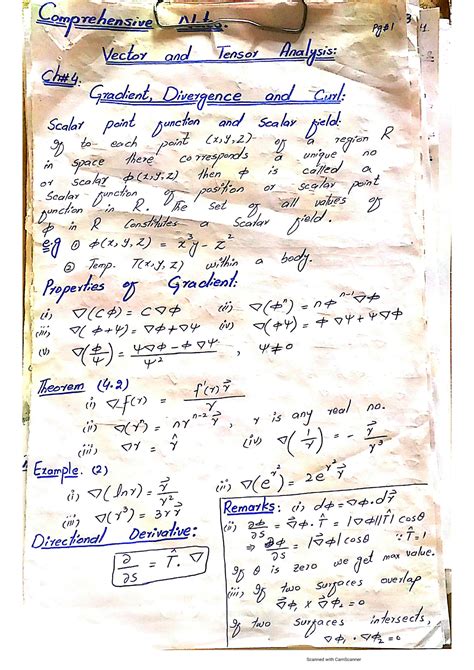 Comprehensive Notes
Pg#1
Vector and Tensor Analysis:
Ch#4.
Gradient, Divergence and Curl:
Scalar point function and Scalar field:
If to each point (x,y,z) of a region R
in space there corresponds a unique no
or scalar φ(x,y,z) then φ is called a
Scalar function of position or scalar point
function in R. The set of all values of
φ in R constitutes a Scalar field.
e.g ① φ(x,y,z) = x³y - z²
② Temp. T(x,y,z) within a body.
Properties of Gradient:
(i) ∇(cφ) = c∇φ (ii) ∇(φⁿ) = nφⁿ⁻¹∇φ
(iii) ∇(φ+ψ) = ∇φ+∇ψ (iv) ∇(φψ) = φ∇ψ+ψ∇φ
(v) ∇(φ/ψ) = ψ∇φ-φ∇ψ/ψ², ψ≠0
Theorem (4.2)
(i) ∇f(r) = f'(r)r⃗/r
(ii) ∇(rⁿ) = nrⁿ⁻²r⃗, r is any real no.
(iii) ∇r = r̂ (iv) ∇(1/r) = -r⃗/r³
Example. (2)
(i) ∇(lnr) = r⃗/r² (ii) ∇(e^r²) = 2e^r² r⃗
(iii) ∇(r³) = 3rr⃗
Directional Derivative:
∂/∂s = T̂.∇
Remarks: (i) dφ = ∇φ.dr⃗
(ii) ∂φ/∂s = ∇φ.T̂ = |∇φ||T̂|cosθ
⇒ ∂φ/∂s = |∇φ|cosθ ∵T̂=1
If θ is zero we get max value.
(iii) If two surfaces overlap
∇φ₁ x ∇φ₂ = 0
If two surfaces intersects,
∇φ₁ . ∇φ₂ = 0
Scanned with CamScanner